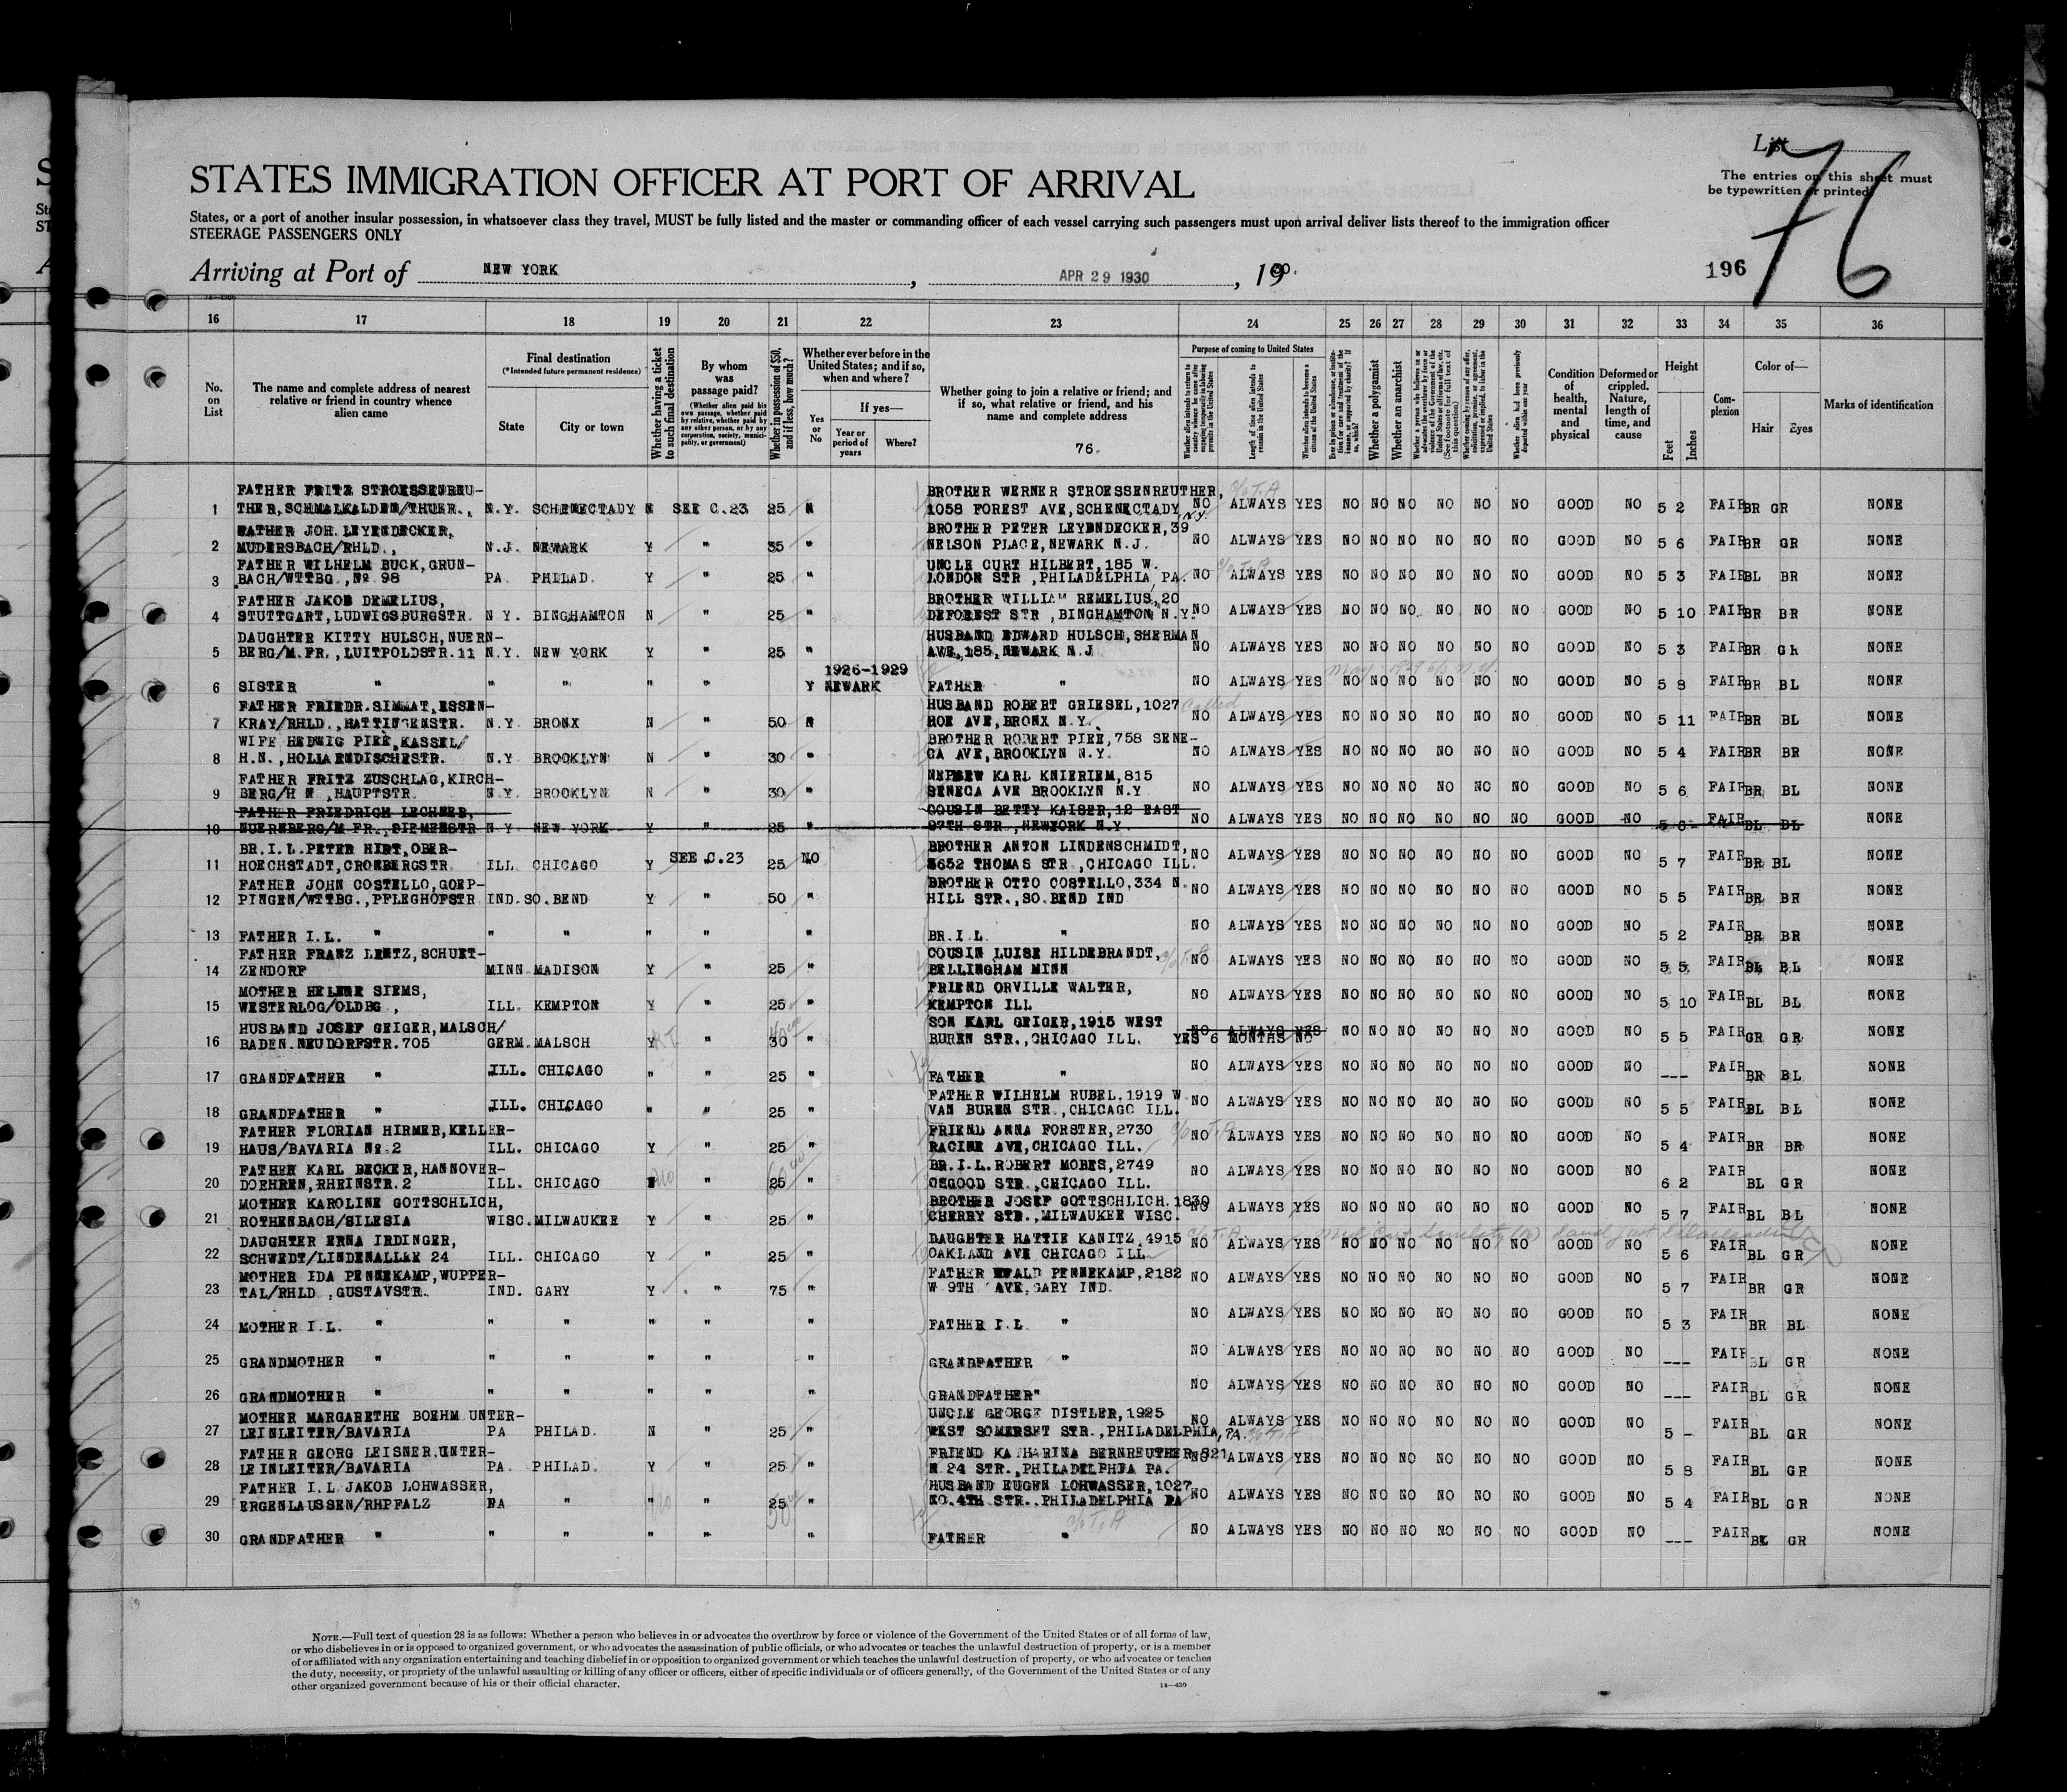 List
76
The entries on this sheet must
be typewritten or printed
STATES IMMIGRATION OFFICER AT PORT OF ARRIVAL
States, or a port of another insular possession, in whatsoever class they travel, MUST be fully listed and the master or commanding officer of each vessel carrying such passengers must upon arrival deliver lists thereof to the immigration officer
STEERAGE PASSENGERS ONLY
Arriving at Port of NEW YORK, APR 29 1930, 1930.
196
16 17 18 19 20 21 22 23 24 25 26 27 28 29 30 31 32 33 34 35 36
No. on List
The name and complete address of nearest relative or friend in country whence alien came
Final destination
(*Intended future permanent residence)
State
City or town
Whether having a ticket to such final destination
By whom was passage paid?
(Whether alien paid his own passage, whether paid by relative, whether paid by any other person, or by any corporation, society, municipality, or government)
Whether in possession of $50, and if less, how much?
Whether ever before in the United States; and if so, when and where?
Yes or No
If yes—
Year or period of years
Where?
Whether going to join a relative or friend; and if so, what relative or friend, and his name and complete address
76.
Purpose of coming to United States
Length of time alien intends to remain in the United States
Whether alien intends to become a citizen of the United States
Whether a polygamist
Whether an anarchist
Condition of health, mental and physical
Deformed or crippled. Nature, length of time, and cause
Height
Feet
Inches
Complexion
Color of—
Hair Eyes
Marks of identification
1 FATHER FRITZ STROESSENREU-
THER, SCHMALKALDEN/THUER., N.Y. SCHENECTADY N SEE C.23 25 N BROTHER WERNER STROESSENREUTHER,
1058 FOREST AVE, SCHENECTADY N.Y. NO ALWAYS YES NO NO NO NO NO NO GOOD NO 5 2 FAIR BR GR NONE
2 FATHER JOH. LEYENDECKER,
MUDERSBACH/RHLD., N.J. NEWARK Y " 35 " BROTHER PETER LEYENDECKER, 39
NELSON PLACE, NEWARK N.J. NO ALWAYS YES NO NO NO NO NO NO GOOD NO 5 6 FAIR BR GR NONE
3 FATHER WILHELM BUCK, GRUN-
BACH/WTTBG., No 98 PA. PHILAD. Y " 25 " UNCLE CURT HILBERT, 185 W.
LONDON STR, PHILADELPHIA, PA. NO ALWAYS YES NO NO NO NO NO NO GOOD NO 5 3 FAIR BL BR NONE
4 FATHER JAKOB DEMELIUS,
STUTTGART, LUDWIGSBURGSTR. N Y. BINGHAMTON N " 25 " BROTHER WILLIAM REMELIUS, 20
DEFOREST STR, BINGHAMTON N.Y. NO ALWAYS YES NO NO NO NO NO NO GOOD NO 5 10 FAIR BR BR NONE
5 DAUGHTER KITTY HULSCH, NUERN-
BERG/M.FR., LUITPOLDSTR.11 N.Y. NEW YORK Y " 25 " HUSBAND EDWARD HULSCH, SHERMAN
AVE, 185, NEWARK N.J NO ALWAYS YES NO NO NO NO NO NO GOOD NO 5 3 FAIR BR GR NONE
6 SISTER " " " " " Y 1926-1929
NEWARK FATHER " NO ALWAYS YES NO NO NO NO NO NO GOOD NO 5 8 FAIR BR BL NONE
7 FATHER FRIEDR. SIMMAT, ESSEN-
KRAY/RHLD., HATTINGENSTR. N.Y BRONX N " 50 N HUSBAND ROBERT GRIESEL, 1027
HOE AVE, BRONX N.Y. NO ALWAYS YES NO NO NO NO NO NO GOOD NO 5 11 FAIR BR BL NONE
8 WIFE HEDWIG PIEE, KASSEL/
H.N., HOLLAENDISCHESTR. N.Y BROOKLYN N " 30 " BROTHER ROBERT PIEE, 758 SENE-
CA AVE, BROOKLYN N.Y. NO ALWAYS YES NO NO NO NO NO NO GOOD NO 5 4 FAIR BR BR NONE
9 FATHER FRITZ ZUSCHLAG, KIRCH-
BERG/H N, HAUPTSTR. N.Y. BROOKLYN N " 30 " NEPHEW KARL KNIERIEM, 815
SENECA AVE BROOKLYN N.Y NO ALWAYS YES NO NO NO NO NO NO GOOD NO 5 6 FAIR BR BL NONE
10 FATHER FRIEDRICH LECHNER,
NUERNBERG/M.FR., SIEMENSTR N Y. NEW YORK Y " 25 " COUSIN BETTY KAISER, 12 EAST
97TH STR, NEWYORK N.Y. NO ALWAYS YES NO NO NO NO NO NO GOOD NO 5 6 FAIR BL BL NONE
11 BR.I.L. PETER HIRT, OBER-
HOECHSTADT, CRONBERGSTR. ILL CHICAGO Y SEE C.23 25 NO BROTHER ANTON LINDENSCHMIDT,
5652 THOMAS STR, CHICAGO ILL. NO ALWAYS YES NO NO NO NO NO NO GOOD NO 5 7 FAIR BR BL NONE
12 FATHER JOHN COSTELLO, GOEP-
PINGEN/WTTBG., PFLEGHOFSTR IND. SO. BEND Y " 50 " BROTHER OTTO COSTELLO, 334 N.
HILL STR., SO. BEND IND NO ALWAYS YES NO NO NO NO NO NO GOOD NO 5 5 FAIR BR BR NONE
13 FATHER I.L. " " " " " " BR.I.L " NO ALWAYS YES NO NO NO NO NO NO GOOD NO 5 2 FAIR BR BR NONE
14 FATHER FRANZ LENTZ, SCHUET-
ZENDORF MINN. MADISON Y " 25 " COUSIN LUISE HILDEBRANDT,
BELLINGHAM MINN NO ALWAYS YES NO NO NO NO NO NO GOOD NO 5 5 FAIR BL BL NONE
15 MOTHER HELENE SIEMS,
WESTERLOG/OLDBG, ILL. KEMPTON Y " 25 " FRIEND ORVILLE WALTER,
KEMPTON ILL NO ALWAYS YES NO NO NO NO NO NO GOOD NO 5 10 FAIR BL BL NONE
16 HUSBAND JOSEF GEIGER, MALSCH/
BADEN. NEUDORFSTR.705 GERM. MALSCH Y " 30 " SON KARL GEIGER, 1915 WEST
BUREN STR., CHICAGO ILL. NO ALWAYS YES
YES 6 MONTHS NO NO NO NO NO NO NO GOOD NO 5 5 FAIR GR GR NONE
17 GRANDFATHER " ILL. CHICAGO " " 25 " FATHER " NO ALWAYS YES NO NO NO NO NO NO GOOD NO --- FAIR BR BL NONE
18 GRANDFATHER " ILL. CHICAGO " " 25 " FATHER WILHELM RUBEL, 1919 W
VAN BUREN STR, CHICAGO ILL. NO ALWAYS YES NO NO NO NO NO NO GOOD NO 5 5 FAIR BL BL NONE
19 FATHER FLORIAN HIRMER, KELLER-
HAUS/BAVARIA No 2 ILL. CHICAGO Y " 25 " FRIEND ANNA FORSTER, 2730
RACINE AVE, CHICAGO ILL. NO ALWAYS YES NO NO NO NO NO NO GOOD NO 5 4 FAIR BR BR NONE
20 FATHER KARL BECKER, HANNOVER-
DOEHREN, RHEINSTR.2 ILL. CHICAGO " 25 " BR.I.L. ROBERT MOBES, 2749
OSGOOD STR, CHICAGO ILL. NO ALWAYS YES NO NO NO NO NO NO GOOD NO 6 2 FAIR BL GR NONE
21 MOTHER KAROLINE GOTTSCHLICH,
ROTHENBACH/SILESIA WISC. MILWAUKEE Y " 25 " BROTHER JOSEF GOTTSCHLICH. 1830
CHERRY STR., MILWAUKEE WISC. NO ALWAYS YES NO NO NO NO NO NO GOOD NO 5 7 FAIR BL BL NONE
22 DAUGHTER ERNA IRDINGER,
SCHWEDT/LINDENALLEE 24 ILL. CHICAGO Y " 25 " DAUGHTER HATTIE KANITZ, 4915
OAKLAND AVE CHICAGO ILL NO ALWAYS YES NO NO NO NO NO NO GOOD NO 5 6 FAIR BL GR NONE
23 MOTHER IDA PENNEKAMP, WUPPER-
TAL/RHLD, GUSTAVSTR. IND. GARY Y " 75 " FATHER EWALD PENNEKAMP, 2182
W 9TH AVE, GARY IND. NO ALWAYS YES NO NO NO NO NO NO GOOD NO 5 7 FAIR BR GR NONE
24 MOTHER I.L. " " " " " " FATHER I.L " NO ALWAYS YES NO NO NO NO NO NO GOOD NO 5 3 FAIR BR BL NONE
25 GRANDMOTHER " " " " " " GRANDFATHER " NO ALWAYS YES NO NO NO NO NO NO GOOD NO --- FAIR BL GR NONE
26 GRANDMOTHER " " " " " " GRANDFATHER " NO ALWAYS YES NO NO NO NO NO NO GOOD NO --- FAIR BL GR NONE
27 MOTHER MARGARETHE BOEHM UNTER-
LEINLEITER/BAVARIA PA PHILAD. N " 25 " UNCLE GEORGE DISTLER, 1925
WEST SOMERSET STR., PHILADELPHIA, PA. NO ALWAYS YES NO NO NO NO NO NO GOOD NO 5 - FAIR BL GR NONE
28 FATHER GEORG LEISNER, UNTER-
LEINLEITER/BAVARIA PA. PHILAD. Y " 25 " FRIEND KATHARINA BERNREUTHER, 821
N 24 STR., PHILADELPHIA PA. NO ALWAYS YES NO NO NO NO NO NO GOOD NO 5 8 FAIR BL GR NONE
29 FATHER I.L. JAKOB LOHWASSER,
ERGENLAUSSEN/RHPFALZ PA " " 25 " HUSBAND EUGEN LOHWASSER, 1027
NO. 4TH STR., PHILADELPHIA PA NO ALWAYS YES NO NO NO NO NO NO GOOD NO 5 4 FAIR BL GR NONE
30 GRANDFATHER " " " " " " FATHER " NO ALWAYS YES NO NO NO NO NO NO GOOD NO --- FAIR BL GR NONE
NOTE.—Full text of question 28 is as follows: Whether a person who believes in or advocates the overthrow by force or violence of the Government of the United States or of all forms of law,
or who disbelieves in or is opposed to organized government, or who advocates the assassination of public officials, or who advocates or teaches the unlawful destruction of property, or is a member
of or affiliated with any organization entertaining and teaching disbelief in or opposition to organized government or which teaches the unlawful destruction of property, or who advocates or teaches
the duty, necessity, or propriety of the unlawful assaulting or killing of any officer or officers, either of specific individuals or of officers generally, of the Government of the United States or of any
other organized government because of his or their official character.
14—430